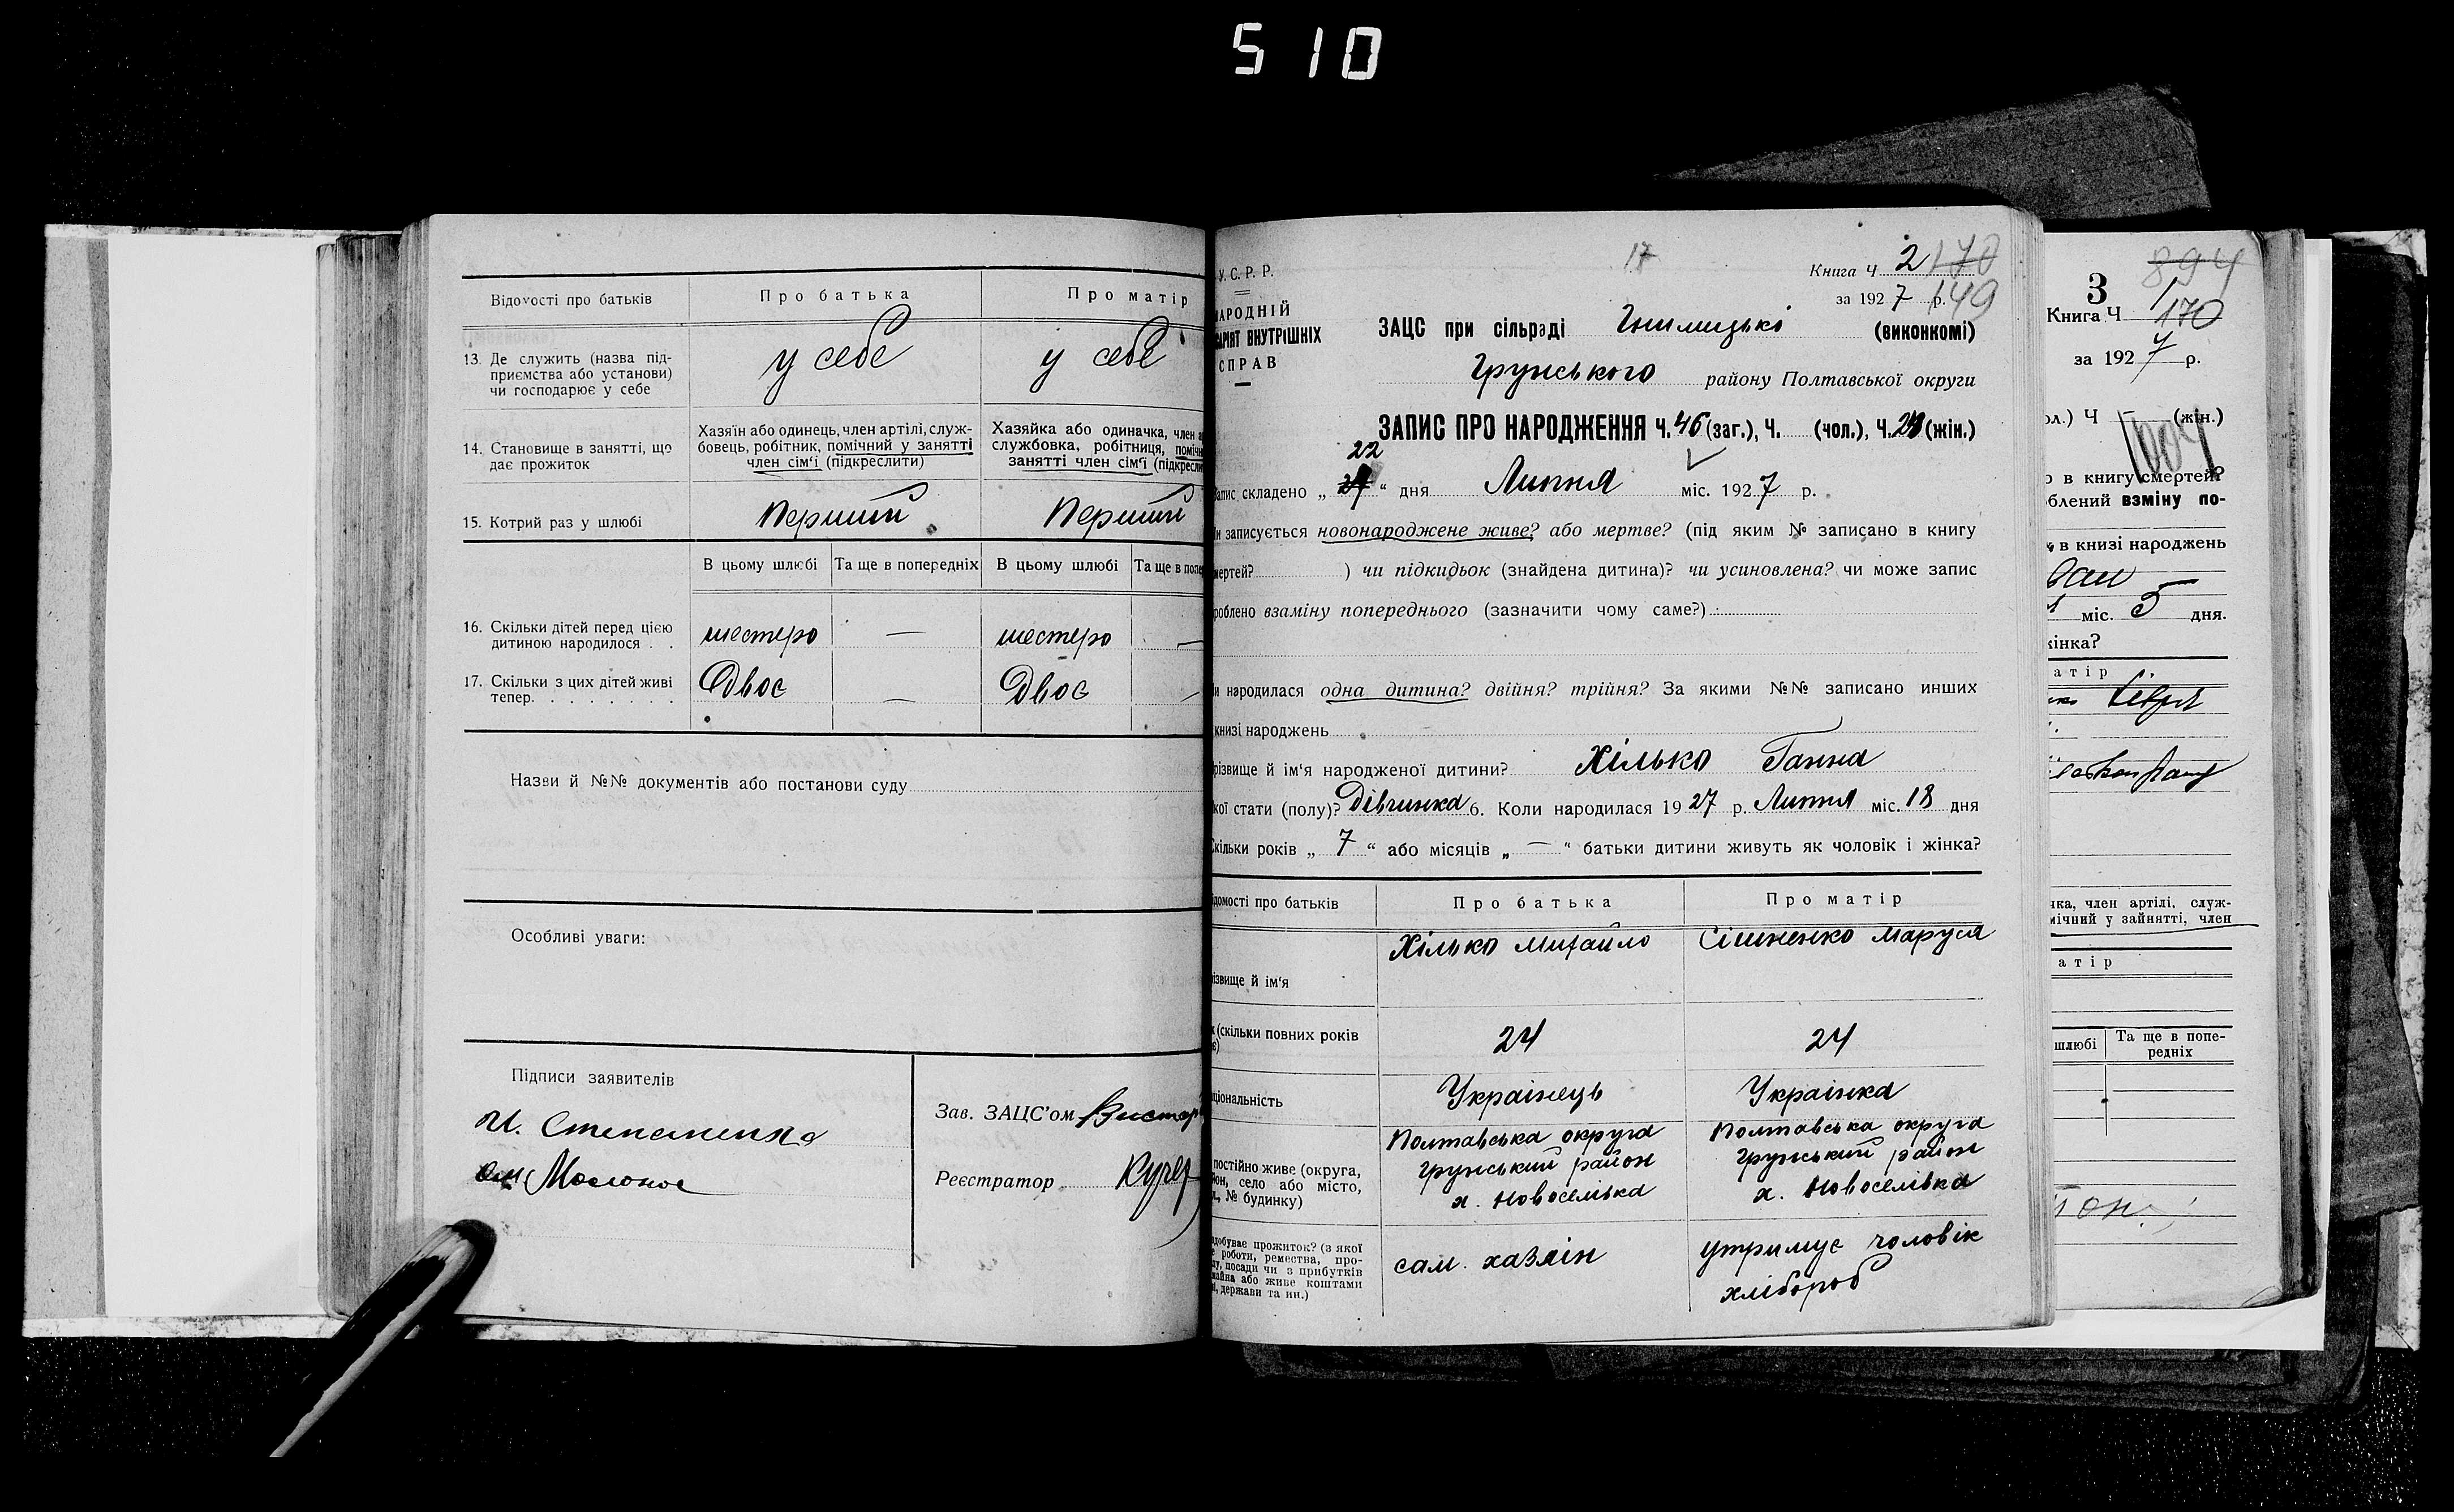 510
Відомості про батьків
Про батька
Про матір
13. Де служить (назва під-
приємства або установи)
чи господарює у себе
у себе
у себе
14. Становище в занятті, що
дає прожиток
Хазяїн або одинець, член артілі, служ-
бовець, робітник, помічний у занятті
член сім'ї (підкреслити)
Хазяйка або одиначка, член а
службовка, робітниця, поміч
занятті член сім'ї (підкресли
15. Котрий раз у шлюбі
Перший
Перший
В цьому шлюбі
Та ще в попередніх
В цьому шлюбі
Та ще в попе
16. Скільки дітей перед цією
дитиною народилося . .
шестеро
—
шестеро
—
17. Скільки з цих дітей живі
тепер. . . . . . . .
Двоє
—
Двоє
—
Назви й №№ документів або постанови суду
Особливі уваги:
Підписи заявителів
Зав. ЗАЦС'ом
Реєстратор
Кучер
17
У.С.Р.Р.
АРОДНІЙ
АРІЯТ ВНУТРІШНІХ
СПРАВ
Книга Ч 2 170
за 1927 р. 149
ЗАЦС при сільраді Гнилицькі (виконкомі)
Грунського району Полтавської округи
ЗАПИС ПРО НАРОДЖЕННЯ Ч. 46 (заг.), Ч. (чол.), Ч. (жін.)
22
апис складено „ “ дня Липня міс. 1927 р.
и записується новонароджене живе? або мертве? (під яким № записано в книгу
мертей? ) чи підкидьок (знайдена дитина)? чи усиновлена? чи може запис
роблено взаміну попереднього (зазначити чому саме?)
и народилася одна дитина? двійня? трійня? За якими №№ записано инших
книзі народжень
різвище й ім'я народженої дитини? Хілько Ганна
кої стати (полу)? Дівчинка 6. Коли народилася 1927 р. Липня міс. 18 дня
кільки років „ 7 “ або місяців „ — “ батьки дитини живуть як чоловік і жінка?
ідомості про батьків
Про батька
Про матір
ізвище й ім'я
Хілько Михайло
Сішненко Маруся
(скільки повних років
24
24
ціональність
Українець
Українка
постійно живе (округа,
йон, село або місто,
№ будинку)
Полтавська округа
Грунський район
х. Новоселівка
Полтавська округа
Грунський район
х. Новоселівка
добуває прожиток? (з якої
роботи, ремества, про-
посади чи з прибутків
майна або живе коштами
держави та ин.)
сам. хазяїн
утримує чоловік
хлібороб
894
3
Книга Ч 1
170
за 1927 р.
ол.) Ч — (жін.)
1004
о в книгу смертей?
облений взміну по-
в книзі народжень
міс. 5 дня.
жінка?
атір
чка, член артілі, служ-
мічний у зайнятті, член
атір
шлюбі
Та ще в попе-
редніх